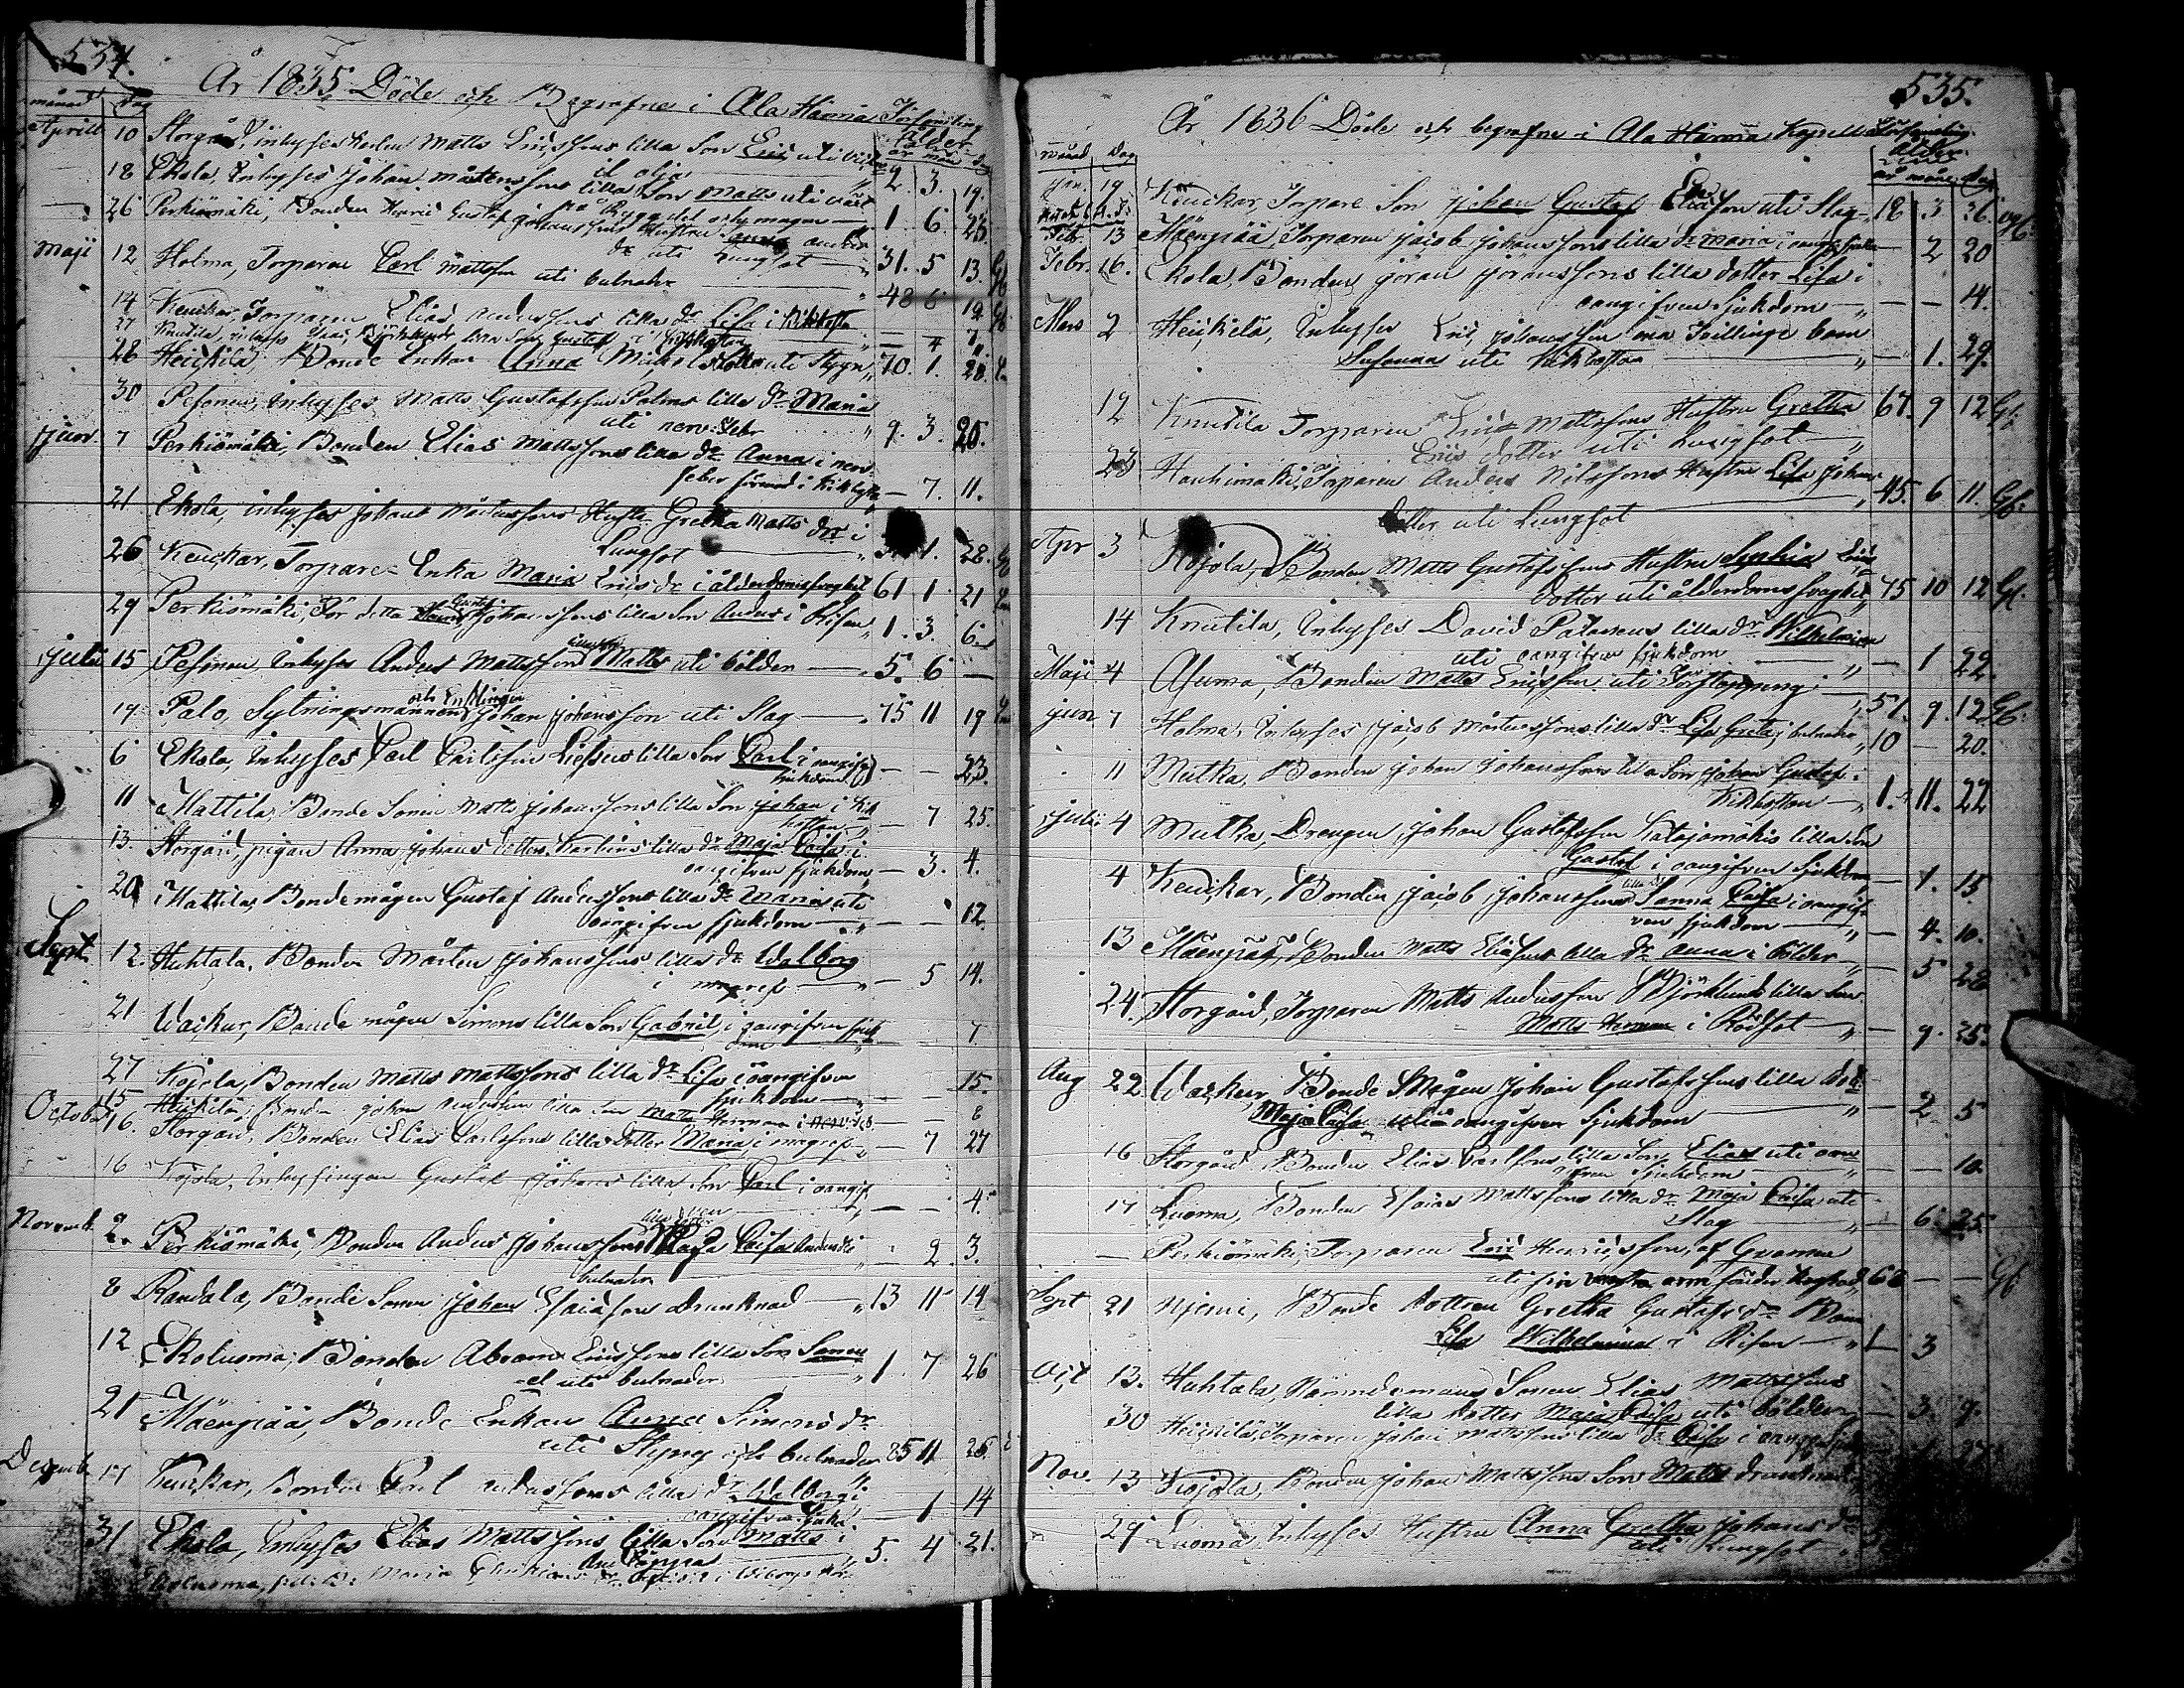 534.
År 1835 Döde och Begrafne i Ala Härmä Församling
månad Dag ålder år mån dag
Aprill 10 Storgård, inhyses Karlen Matts Ericssons lilla Son Eric uti
il olja 2. 3. 19.
18 Ekola, Inhyses Johan Mårtenssons lilla Son Matts uti värk
på Ryggadel 1 6 23.
26 Perkiömäki, Bonden Henric Gustaf Johanssons Hustru Sanna Anders
dr uti Lungsot 31. 5 13.
Maji 12 Holma, Torparen Carl Mattsson uti bulnader 48 6 19
14 Keuckar, Torparen Elias Anderssons lilla dr Lisa i Kikhosta — 4 7
27 Knutila, inhyses Björklunds lilla Son Gustaf i kikhostan
28 Heickilä, Bonde Enkan Anna Mickelsdotter uti Styng 70. 1. 28.
30 Pesonen, Inhyses Matts Gustafsson Palms lilla dr Maria
uti nerv feber 9. 3. 25.
Juni 7 Perkiömäki, Bonden Elias Mattssons lilla dr Anna i nerv
feber — 7. 11.
21 Ekola, inhyses Johans Mårtenssons Hustru Gretha Matts dr i
Lungsot 1. 28.
26 Keuckar, Torpare Enka Maria Erics dr i ålderdomssvaghet 61 1 21
29 Perkiömäki, För detta Johanssons lilla Son Anders i Risen 1. 3. 6
Julii 15 Pesonen Inhyses Anders Mattssons Matts uti bölder 5. 6 —
19 Palo, Sytningsmannen och Enklingen Johan Johansson uti Slag 75 11 19
6 Ekola, Inhyses Carl Carlsson lilla Son Carl i oangifven
sjukdom — — 23.
11 Mattila, Bonde Sonen Matts Johanssons lilla Son Johan i Kik
hostan — 7 25.
13. Storgård, pigan Anna Johans dotter Karlins lilla dr Maja Caisa i
oangifven sjukdom — 3. 4.
20 Mattila, Bondemågen Gustaf Anderssons lilla dr Maria uti
oangifven sjukdom — — 12.
Sept. 12. Huhtala, Bonden Mårten Johanssons lilla dr Walborg
i magref — 5 14.
21 Waikur, Bonde mågen Simons lilla Son Gabriel, i oangifven sjuk
dom 7
27 Kojola, Bonden Matts Mattssons lilla dr Lisa i oangifven
sjukdom 15.
Octob. 15 Heickilä, Bonden Johan Anderssons lilla Son Matts Herman i 8
16. Storgård, Bonden Elias Carlssons lilla dotter Maria i magref — 7 27
16 Kojola, Inhysspigan Gustaf Johans lilla Son Carl i oangif
ven — — 4.
Novemb. 2. Perkiömäki, Bonden Anders Johanssons lilla dotter Maja Caisa Anders dr
bulnader — 2 3.
8 Randala, Bonde Sonen Johan Esaiasson drunknad 13 11 14
12 Ekoluoma, Bonden Abram Ericssons lilla Son Samu
el uti bulnader 1 7 26
21 Mäenpää, Bonde Enkan Anna Simons dr
uti Styng och bulnader 85 11 25
Decemb. 17 Keuckar, Bonden Carl Anderssons lilla dr Walborg i
oangifven sjukd. — 1 14
31 Ekola, Inhyses Elias Mattssons lilla Son Matts i
5. 4 21.
535.
År 1836 Döde och begrafne i Ala Härmä Kapells Församling.
månad Dag ålder år mån. dag
Jan. 19 Keuckar, Torpare Son Johan Gustaf Eliasson uti Slag 18 3 26
Feb. 13 Mäenpää, Torparen Jacob Johanssons lilla dr Maria i oangif. sjukdom — 2 20
Febr. 16. Ekola, Bonden Jöran Jöranssons lilla dotter Lisa i
oangifven sjukdom — — 14.
Mars 2 Heickilä, Inhyses Eric Johansson ena Tvillinge barn
Susanna uti kikhostan — 1. 29.
12 Knutila Torparen Eric Mattssons Hustru Gretha
Erics dotter uti Lungsot 67. 9 12
23 Hanhimäki, Torparen Anders Nilssons Hustru Lisa Johans
dotter uti Lungsot 45. 6 11.
Apr 3 Kojola, Bonden Matts Gustafssons Hustru Sophia Erics
dotter uti ålderdoms svaghet 75 10 12
14 Knutila, Inhyses David Palanens lilla dr Wilhelmina
uti oangifven sjukdom — 1 22.
Maji 4 Asuma, Bonden Matts Ericsson uti Förstoppning 51. 9. 12
Jun 7 Holma, Inhyses Jacob Mårtenssons lilla dr Lisa Greta i bulnader 10 — 20.
11 Mutka, Bonden Johan Johanssons lilla Son Johan Gustaf i
Kikhostan 1. 11. 22
Julii 4 Mutka, Drengen Johan Gustafsson Katajamäkis lilla Son
Gustaf i oangifven sjukdom — 1. 15
4 Keuckar, Bonden Jacob Johanssons lilla dr Sanna Caisa i oangif
ven sjukdom — 4. 10.
13 Mäenpää, Bonden Matts Eliasons lilla dr Anna i bölder — 5 28
24. Storgård, Torparen Matts Andersson Björklunds lilla Son
Matts Herman i Rödsot — 9. 25.
Aug 22 Waikur, Bonde Mågen Johan Gustafssons lilla dotter
Maja Caisa uti oangifven sjukdom — 2 5
16 Storgård, Bonden Elias Carlssons lilla Son Elias uti oan
gifven sjukdom — — 10.
17 Luoma, Bonden Esaias Mattssons lilla dr Maja Caisa uti
Slag — 6 25
— Perkiömäki, Torparen Eric Henricsson, af Gramma
uti sin arm 66 — —
Sept 21 Njemi, Bonde dottren Gretha Gustafs dr Barn
Lisa Wilhelmina i Risen 1 3
Oct 13. Huhtala, Nämndemans Sonen Elias Mattssons
lilla dotter Maja Caisa uti bölder — 3. 9.
30 Heickilä, Torparen Johan Mattssons lilla dr Caisa i oangif. 27
Nov. 13 Kojola, Bonden Johan Mattssons Son Matts drunknad
29 Luoma, Inhyses Hustru Anna Gretha Johans dr
uti Lungsot